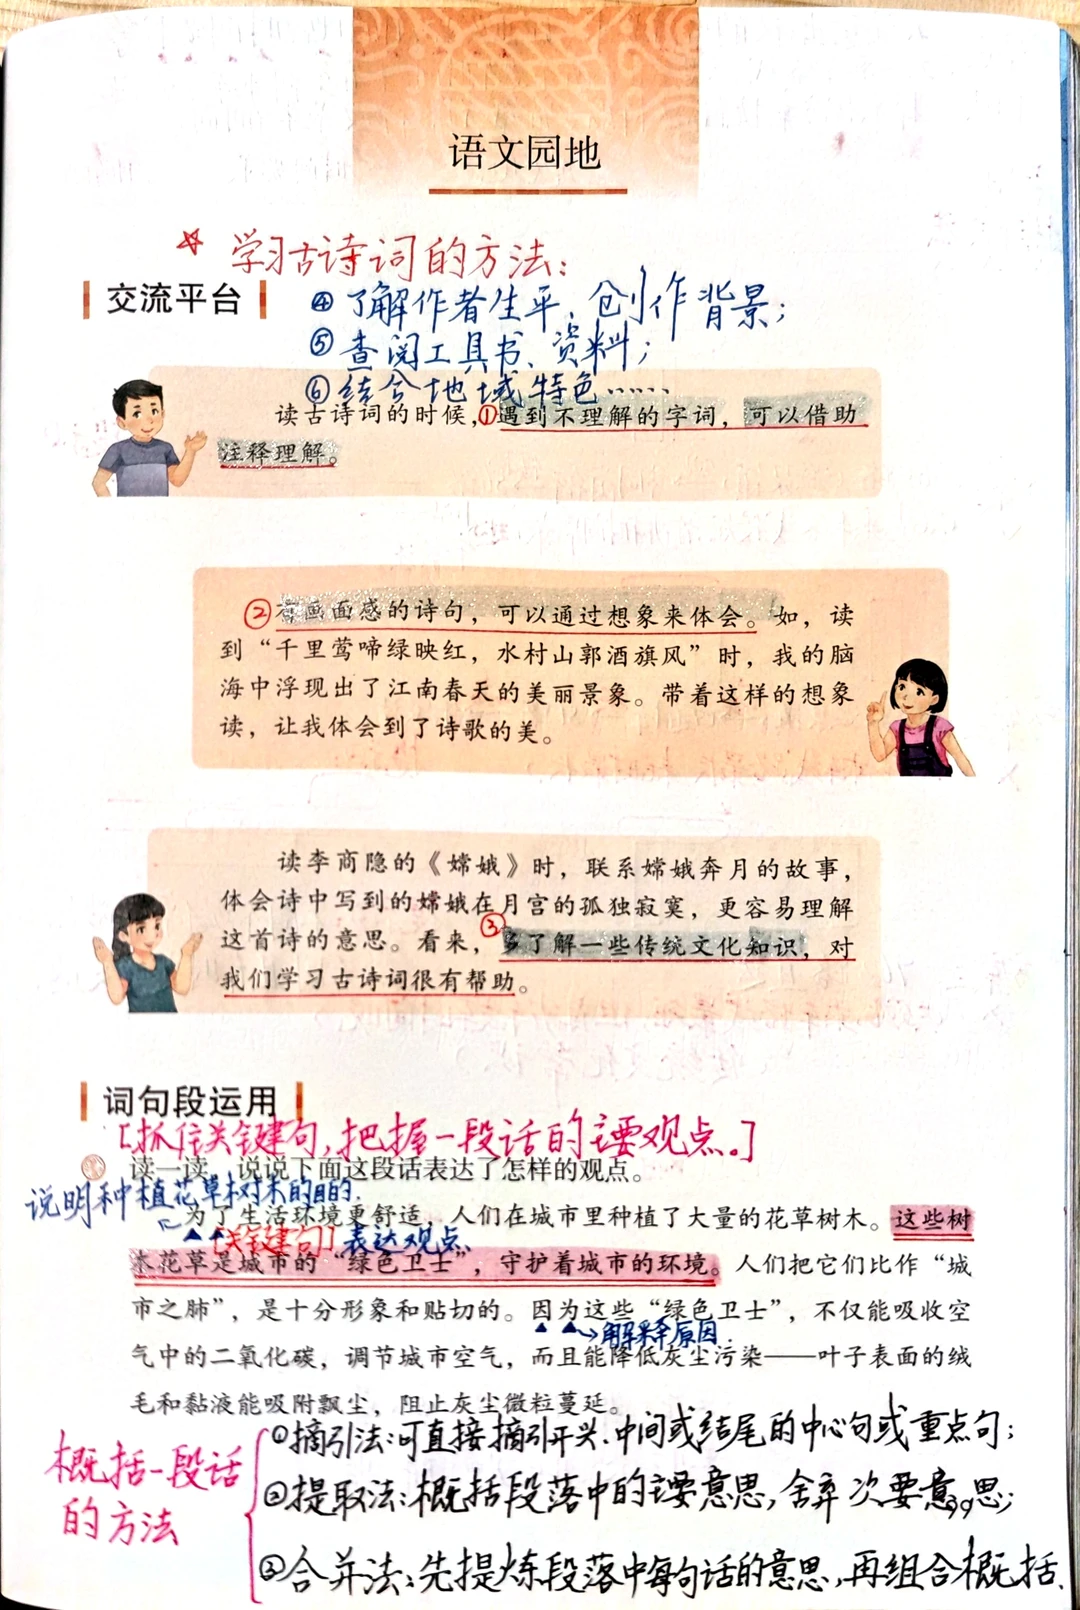 语文园地
☆ 学习古诗词的方法：
交流平台
④了解作者生平、创作背景；
⑤查阅工具书、资料；
⑥结合地域特色……
读古诗词的时候，①遇到不理解的字词，可以借助
注释理解。
②有画面感的诗句，可以通过想象来体会。如，读
到“千里莺啼绿映红，水村山郭酒旗风”时，我的脑
海中浮现出了江南春天的美丽景象。带着这样的想象
读，让我体会到了诗歌的美。
读李商隐的《嫦娥》时，联系嫦娥奔月的故事，
体会诗中写到的嫦娥在月宫的孤独寂寞，更容易理解
这首诗的意思。看来，③多了解一些传统文化知识，对
我们学习古诗词很有帮助。
词句段运用
[抓住关键句，把握一段话的主要观点。]
读一读，说说下面这段话表达了怎样的观点。
说明种植花草树木的目的.
为了生活环境更舒适，人们在城市里种植了大量的花草树木。这些树
[关键句]，表达观点
木花草是城市的“绿色卫士”，守护着城市的环境。人们把它们比作“城
市之肺”，是十分形象和贴切的。因为这些“绿色卫士”，不仅能吸收空
解释原因.
气中的二氧化碳，调节城市空气，而且能降低灰尘污染——叶子表面的绒
毛和黏液能吸附飘尘，阻止灰尘微粒蔓延。
概括一段话
的方法
①摘引法：可直接摘引开头、中间或结尾的中心句或重点句；
②提取法：概括段落中的主要意思，舍弃次要意思；
39
③合并法：先提炼段落中每句话的意思，再组合概括.